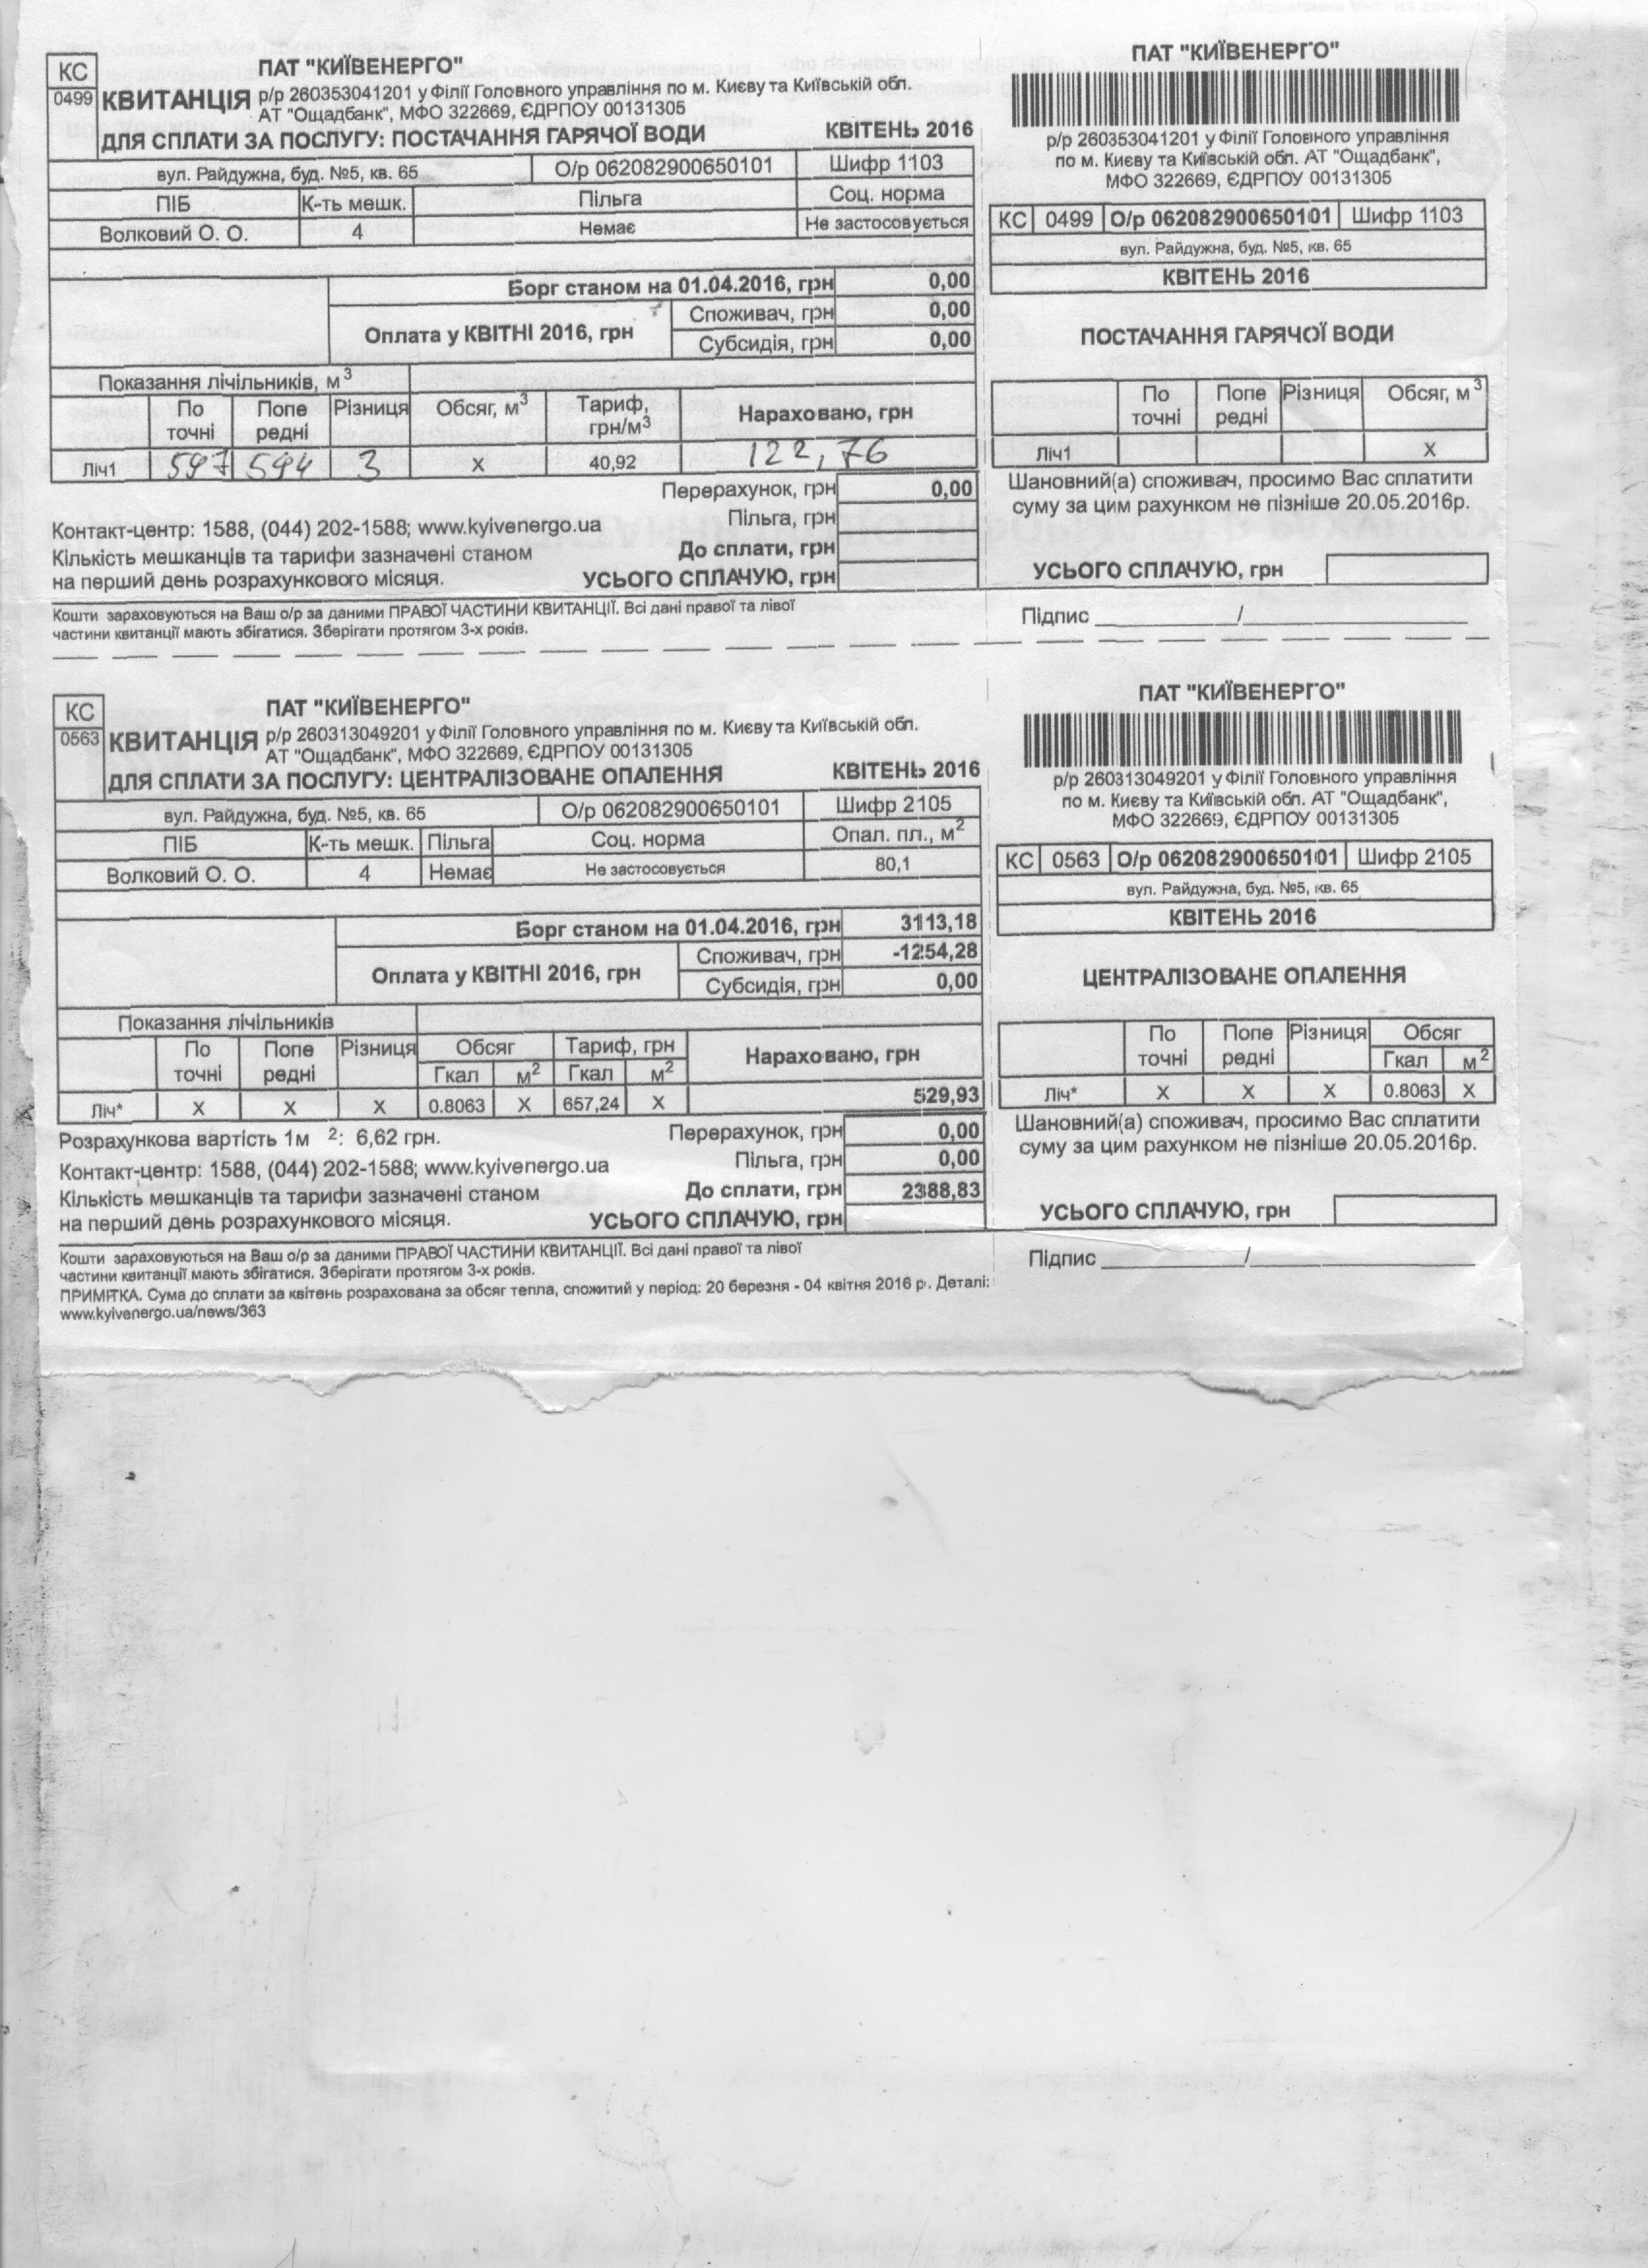 КС
0499
ПАТ "КИЇВЕНЕРГО"
КВИТАНЦІЯ р/р 260353041201 у Філії Головного управління по м. Києву та Київській обл.
АТ "Ощадбанк", МФО 322669, ЄДРПОУ 00131305
ДЛЯ СПЛАТИ ЗА ПОСЛУГУ: ПОСТАЧАННЯ ГАРЯЧОЇ ВОДИ КВІТЕНЬ 2016
вул. Райдужна, буд. №5, кв. 65 О/р 062082900650101 Шифр 1103
ПІБ К-ть мешк. Пільга Соц. норма
Волковий О. О. 4 Немає Не застосовується
Борг станом на 01.04.2016, грн 0,00
Оплата у КВІТНІ 2016, грн Споживач, грн 0,00
Субсидія, грн 0,00
Показання лічільників, м3
По точні Попе редні Різниця Обсяг, м3 Тариф, грн/м3 Нараховано, грн
Ліч1 597 594 3 X 40,92 122,76
Перерахунок, грн 0,00
Контакт-центр: 1588, (044) 202-1588; www.kyivenergo.ua Пільга, грн
Кількість мешканців та тарифи зазначені станом До сплати, грн
на перший день розрахункового місяця. УСЬОГО СПЛАЧУЮ, грн
Кошти зараховуються на Ваш о/р за даними ПРАВОЇ ЧАСТИНИ КВИТАНЦІЇ. Всі дані правої та лівої
частини квитанції мають збігатися. Зберігати протягом 3-х років.
ПАТ "КИЇВЕНЕРГО"
р/р 260353041201 у Філії Головного управління
по м. Києву та Київській обл. АТ "Ощадбанк",
МФО 322669, ЄДРПОУ 00131305
КС 0499 О/р 062082900650101 Шифр 1103
вул. Райдужна, буд. №5, кв. 65
КВІТЕНЬ 2016
ПОСТАЧАННЯ ГАРЯЧОЇ ВОДИ
По точні Попе редні Різниця Обсяг, м3
Ліч1 X
Шановний(а) споживач, просимо Вас сплатити
суму за цим рахунком не пізніше 20.05.2016р.
УСЬОГО СПЛАЧУЮ, грн
Підпис ____________/____________________
КС
0563
ПАТ "КИЇВЕНЕРГО"
КВИТАНЦІЯ р/р 260313049201 у Філії Головного управління по м. Києву та Київській обл.
АТ "Ощадбанк", МФО 322669, ЄДРПОУ 00131305
ДЛЯ СПЛАТИ ЗА ПОСЛУГУ: ЦЕНТРАЛІЗОВАНЕ ОПАЛЕННЯ КВІТЕНЬ 2016
вул. Райдужна, буд. №5, кв. 65 О/р 062082900650101 Шифр 2105
ПІБ К-ть мешк. Пільга Соц. норма Опал. пл., м2
Волковий О. О. 4 Немає Не застосовується 80,1
Борг станом на 01.04.2016, грн 3113,18
Оплата у КВІТНІ 2016, грн Споживач, грн -1254,28
Субсидія, грн 0,00
Показання лічільників
По точні Попе редні Різниця Обсяг Тариф, грн Нараховано, грн
Гкал м2 Гкал м2
Ліч* X X X 0.8063 X 657,24 X 529,93
Розрахункова вартість 1м 2: 6,62 грн. Перерахунок, грн 0,00
Контакт-центр: 1588, (044) 202-1588; www.kyivenergo.ua Пільга, грн 0,00
Кількість мешканців та тарифи зазначені станом До сплати, грн 2388,83
на перший день розрахункового місяця. УСЬОГО СПЛАЧУЮ, грн
Кошти зараховуються на Ваш о/р за даними ПРАВОЇ ЧАСТИНИ КВИТАНЦІЇ. Всі дані правої та лівої
частини квитанції мають збігатися. Зберігати протягом 3-х років.
ПРИМІТКА. Сума до сплати за квітень розрахована за обсяг тепла, спожитий у період: 20 березня - 04 квітня 2016 р. Деталі:
www.kyivenergo.ua/news/363
ПАТ "КИЇВЕНЕРГО"
р/р 260313049201 у Філії Головного управління
по м. Києву та Київській обл. АТ "Ощадбанк",
МФО 322669, ЄДРПОУ 00131305
КС 0563 О/р 062082900650101 Шифр 2105
вул. Райдужна, буд. №5, кв. 65
КВІТЕНЬ 2016
ЦЕНТРАЛІЗОВАНЕ ОПАЛЕННЯ
По точні Попе редні Різниця Обсяг
Гкал м2
Ліч* X X X 0.8063 X
Шановний(а) споживач, просимо Вас сплатити
суму за цим рахунком не пізніше 20.05.2016р.
УСЬОГО СПЛАЧУЮ, грн
Підпис ____________/____________________